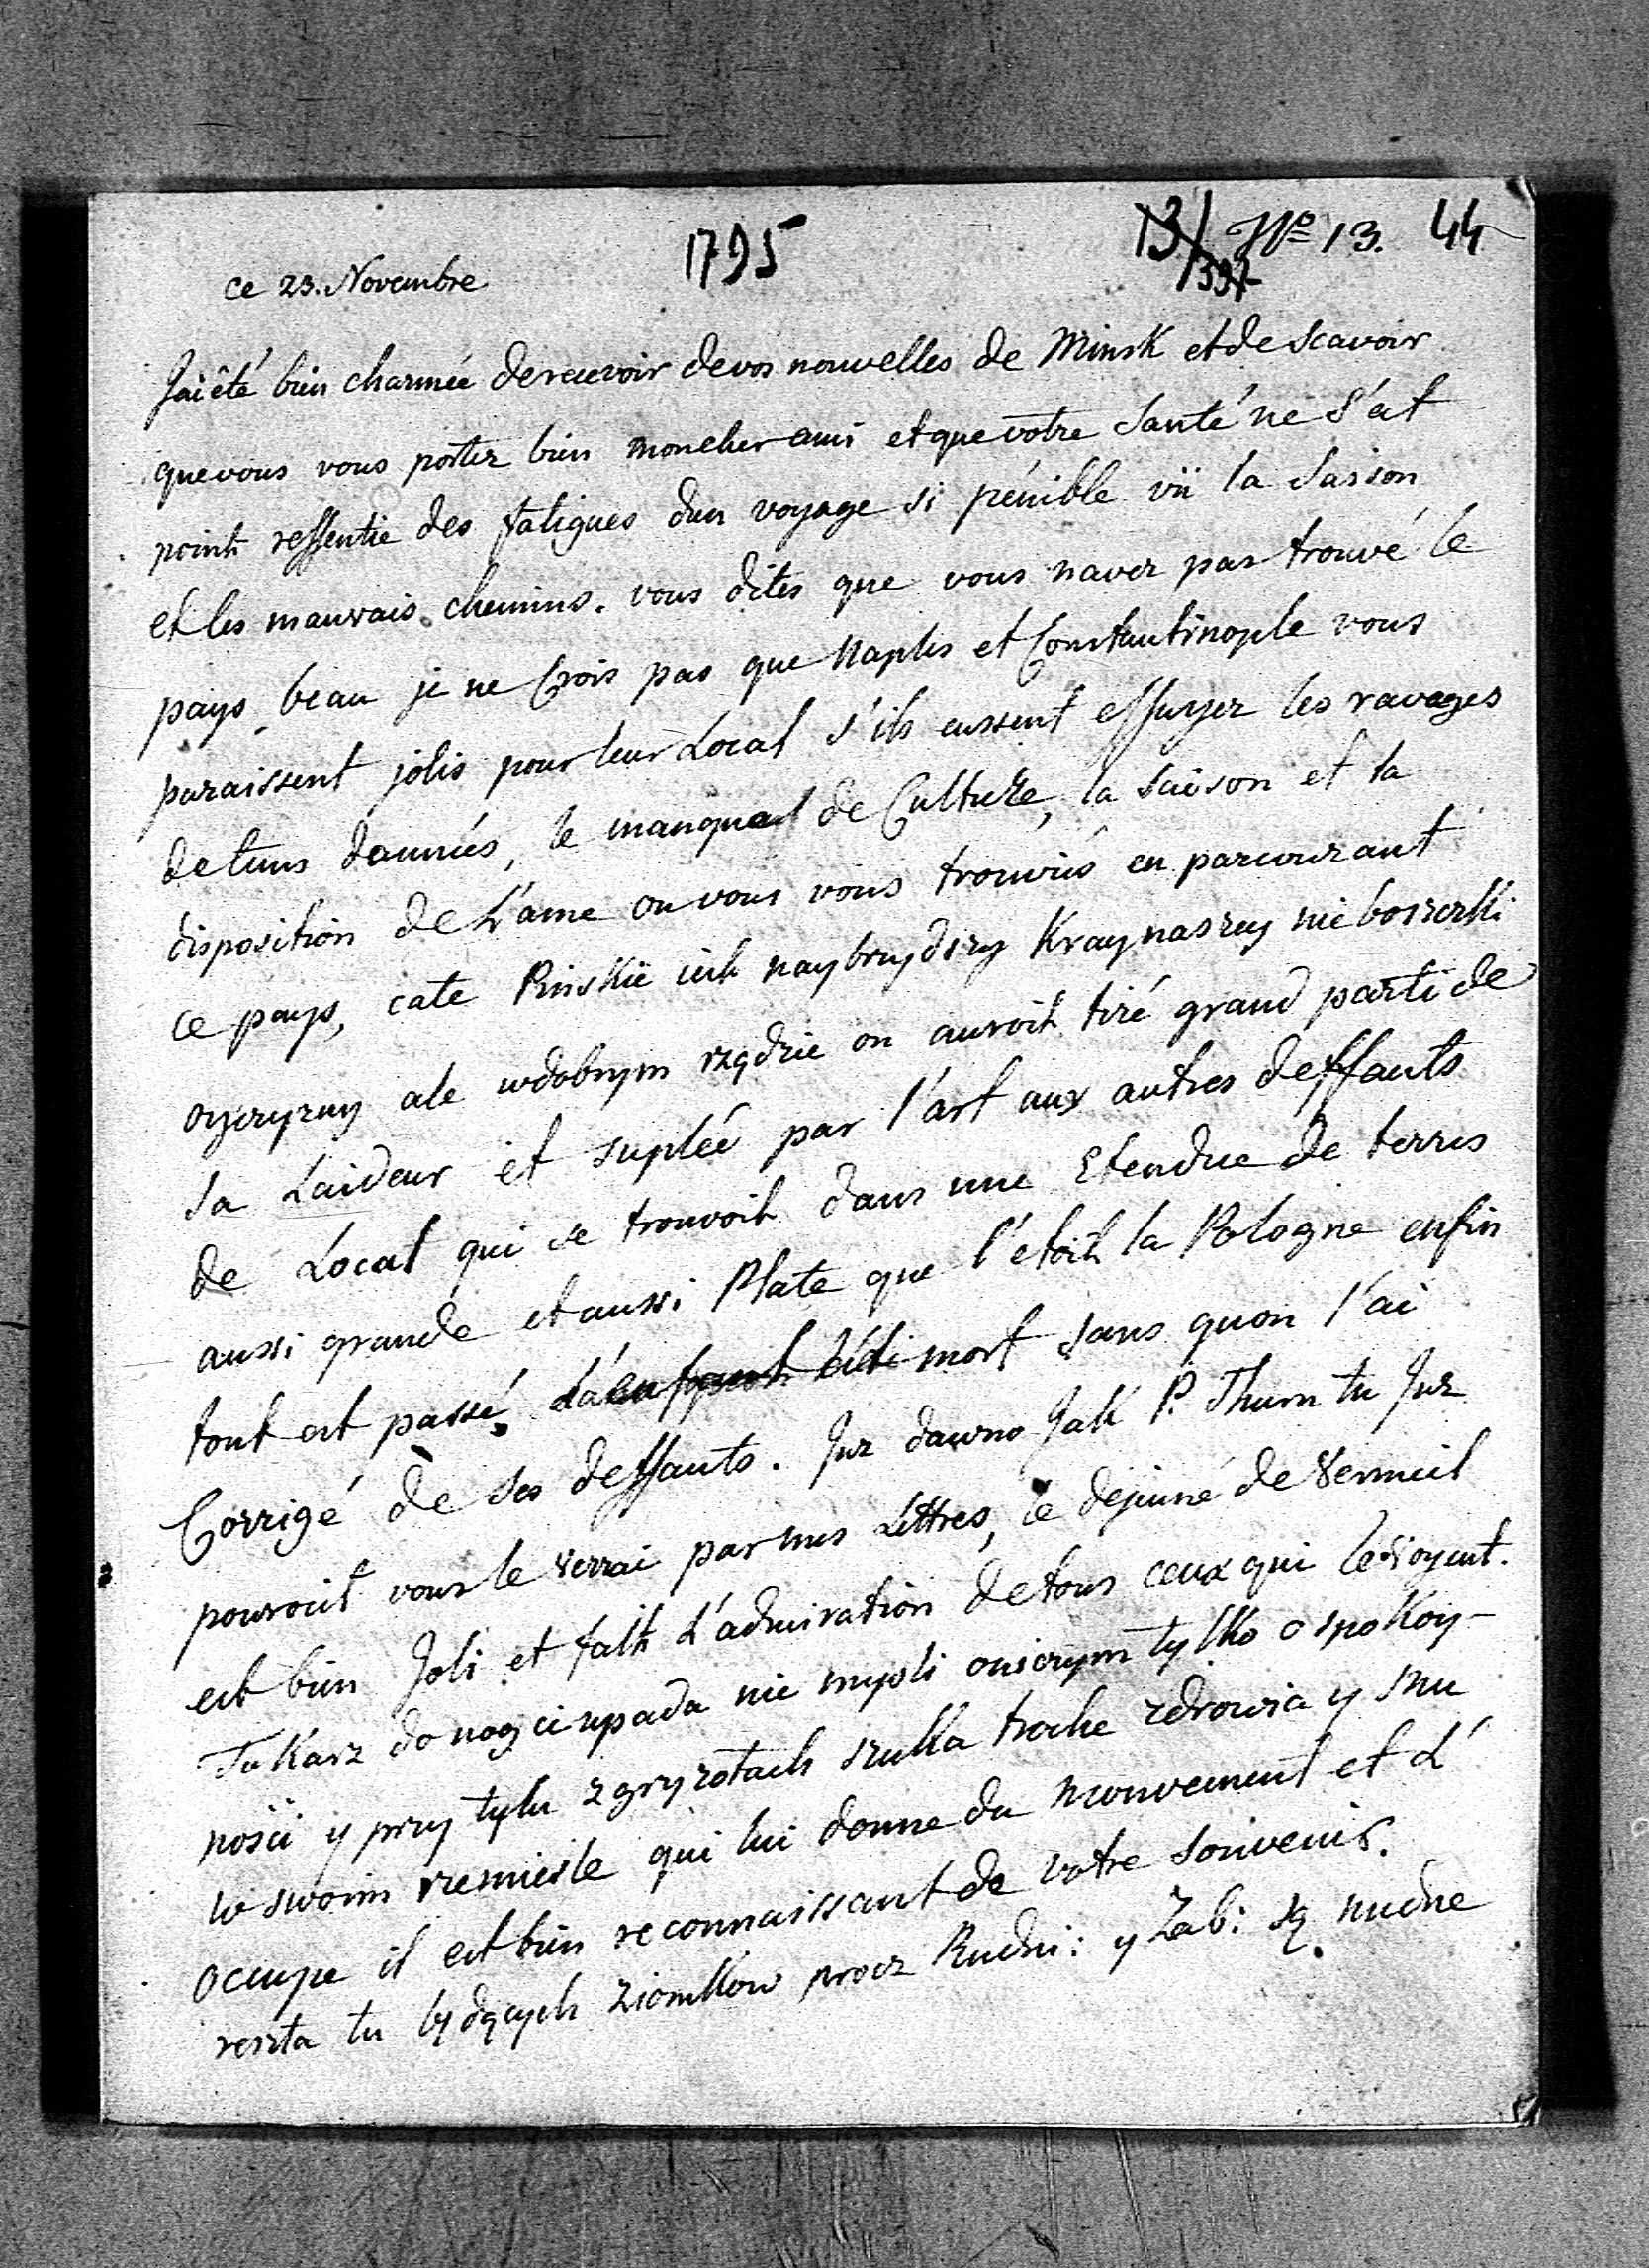 1795
13/397 No 13. 44
ce 23. Novembre
J'ai êté bien charmée de recevoir de vos nouvelles de Minsk et de scavoir
que vous vous portez bien mon cher ami et que vôtre santé ne s'est
point ressentie des fatigues dun voyage si pénible vü la saison
et les mauvais chemins. vous dites que vous navez pas trouvé le
pays beau je ne Crois pas que Naples et Constantinople vous
paraissent jolis pour leur Local s'ils eussent essuyer les ravages
de tems dannés, le manque de Culture, la saison et la
disposition de L'ame ou vous vous trouviés en parcourant
ce pays, cate Pinskie iest naybrzydszy Kray naszey nieboszczki
oyczyzny ale wdobrym rządzie on auroit tiré grand parti de
sa Laideur et suplée par l'art aux autres deffauts
de Local qui se trouvoit dans une Etendue de terres
aussi grande et aussi Plate que l'etoit la Pologne enfin
tout est passé, mort sans quon l'ai
Corrigé de ses deffauts. Juz dawno Jak P. Thurn tu Juz
pouroit vous le verrai par mes Lettres, le déjeuné de vermeil
est bien Joli et fait L'admiration de tous ceux qui le voyent.
Tokarz do nog ci upada nie mysli oniczym tylko o spokoy-
nosci y przy tylu zgryzotach szuka troche zdrowia y snu
w swoim rzemiesle qui lui donne du mouvement et L'
occupe il est bien reconnaissant de votre souvenir.
reszta tu będących ziomkow procz Rudni: y Zab: są nudne